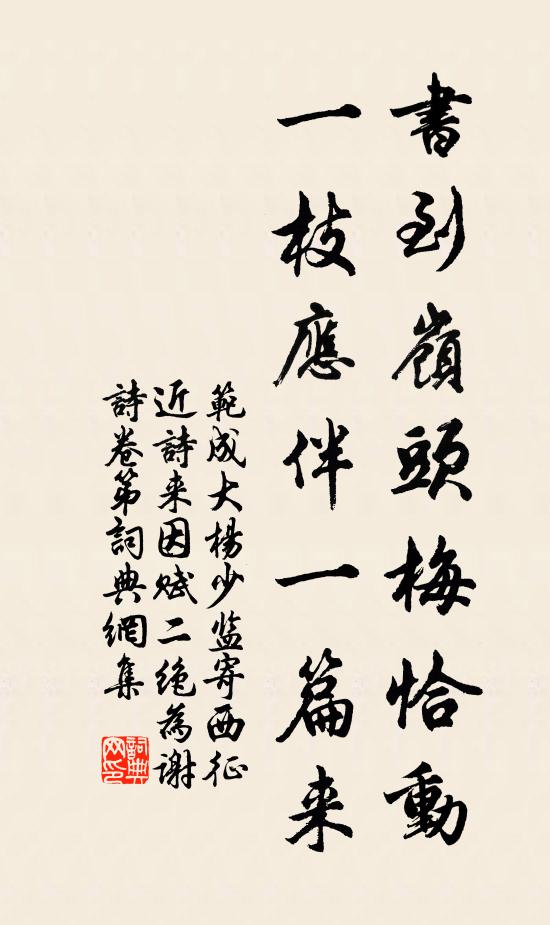 書到嶺頭梅恰動
一枝應伴一篇来
範成大楊少监寄西征
近詩来因赋二绝為谢
詩卷第詞典網集
詞典网印